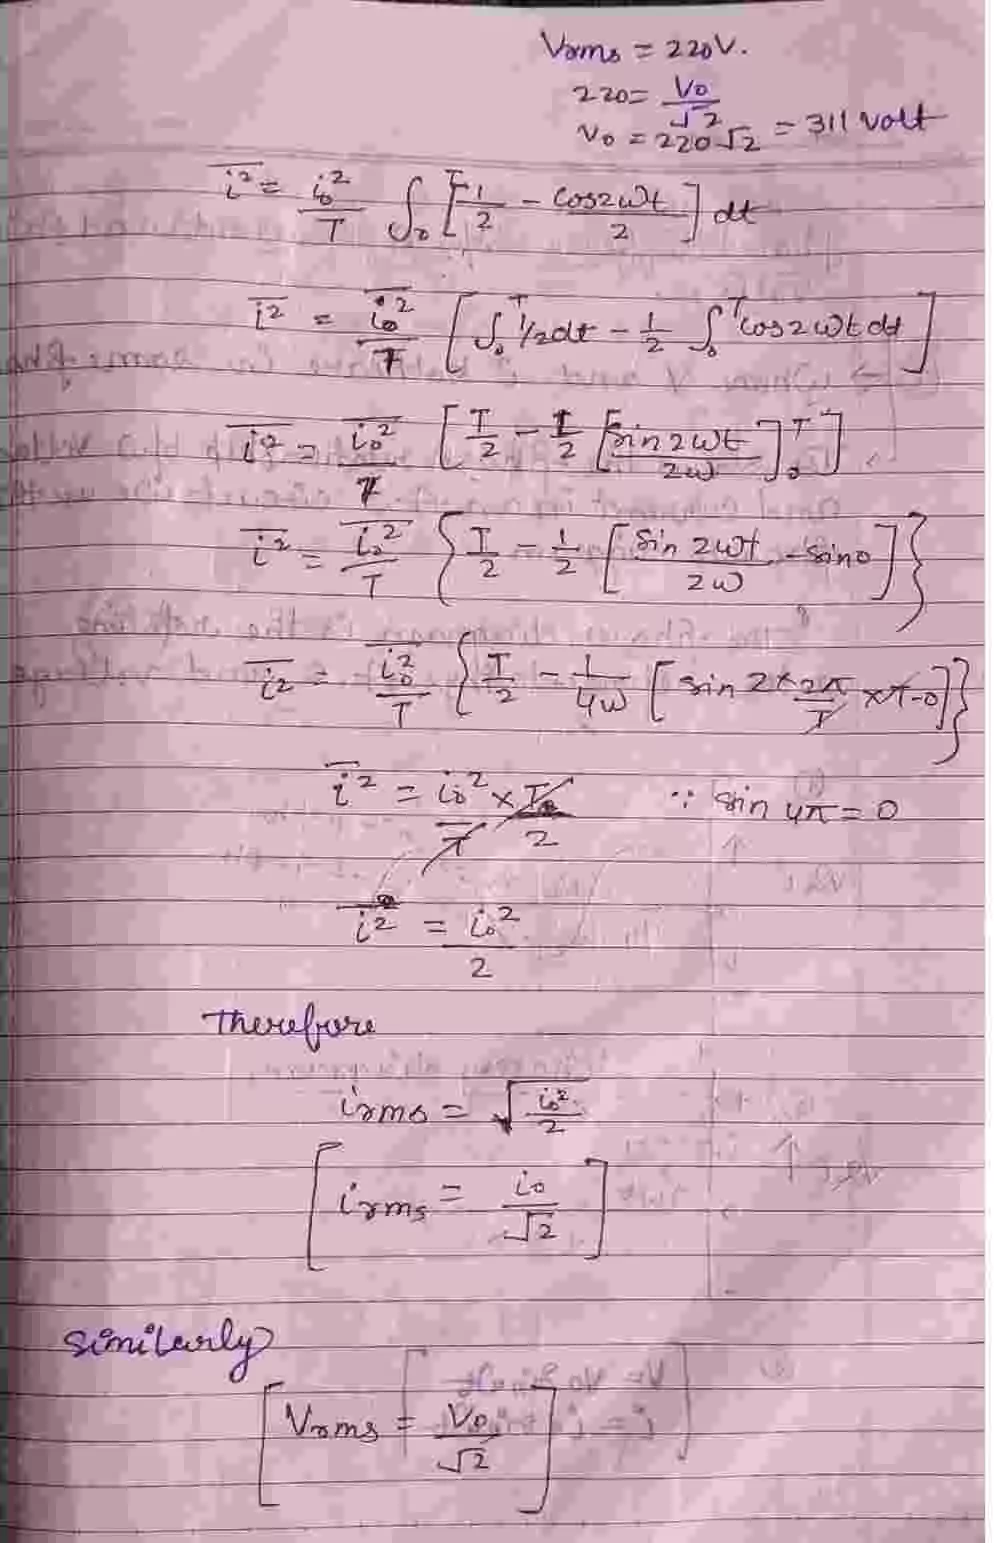 Vrms = 220V.
220 = V₀/√2
V₀ = 220√2 = 311 volt
i̅² = i₀²/T ∫₀ᵀ [1/2 - cos2ωt/2] dt
i̅² = i₀²/T [∫₀ᵀ 1/2 dt - 1/2 ∫₀ᵀ cos2ωt dt]
i̅² = i₀²/T [T/2 - 1/2 [sin2ωt/2ω]₀ᵀ]
i̅² = i₀²/T {T/2 - 1/2 [sin 2ωt/2ω - sin0]}
i̅² = i₀²/T {T/2 - 1/4ω [sin 2×2π/T ×T-0]}
i̅² = i₀²/T × T/2 ∵ sin 4π = 0
i̅² = i₀²/2
Therefore
irms = √i₀²/2
[irms = i₀/√2]
Similarly
[Vrms = V₀/√2]